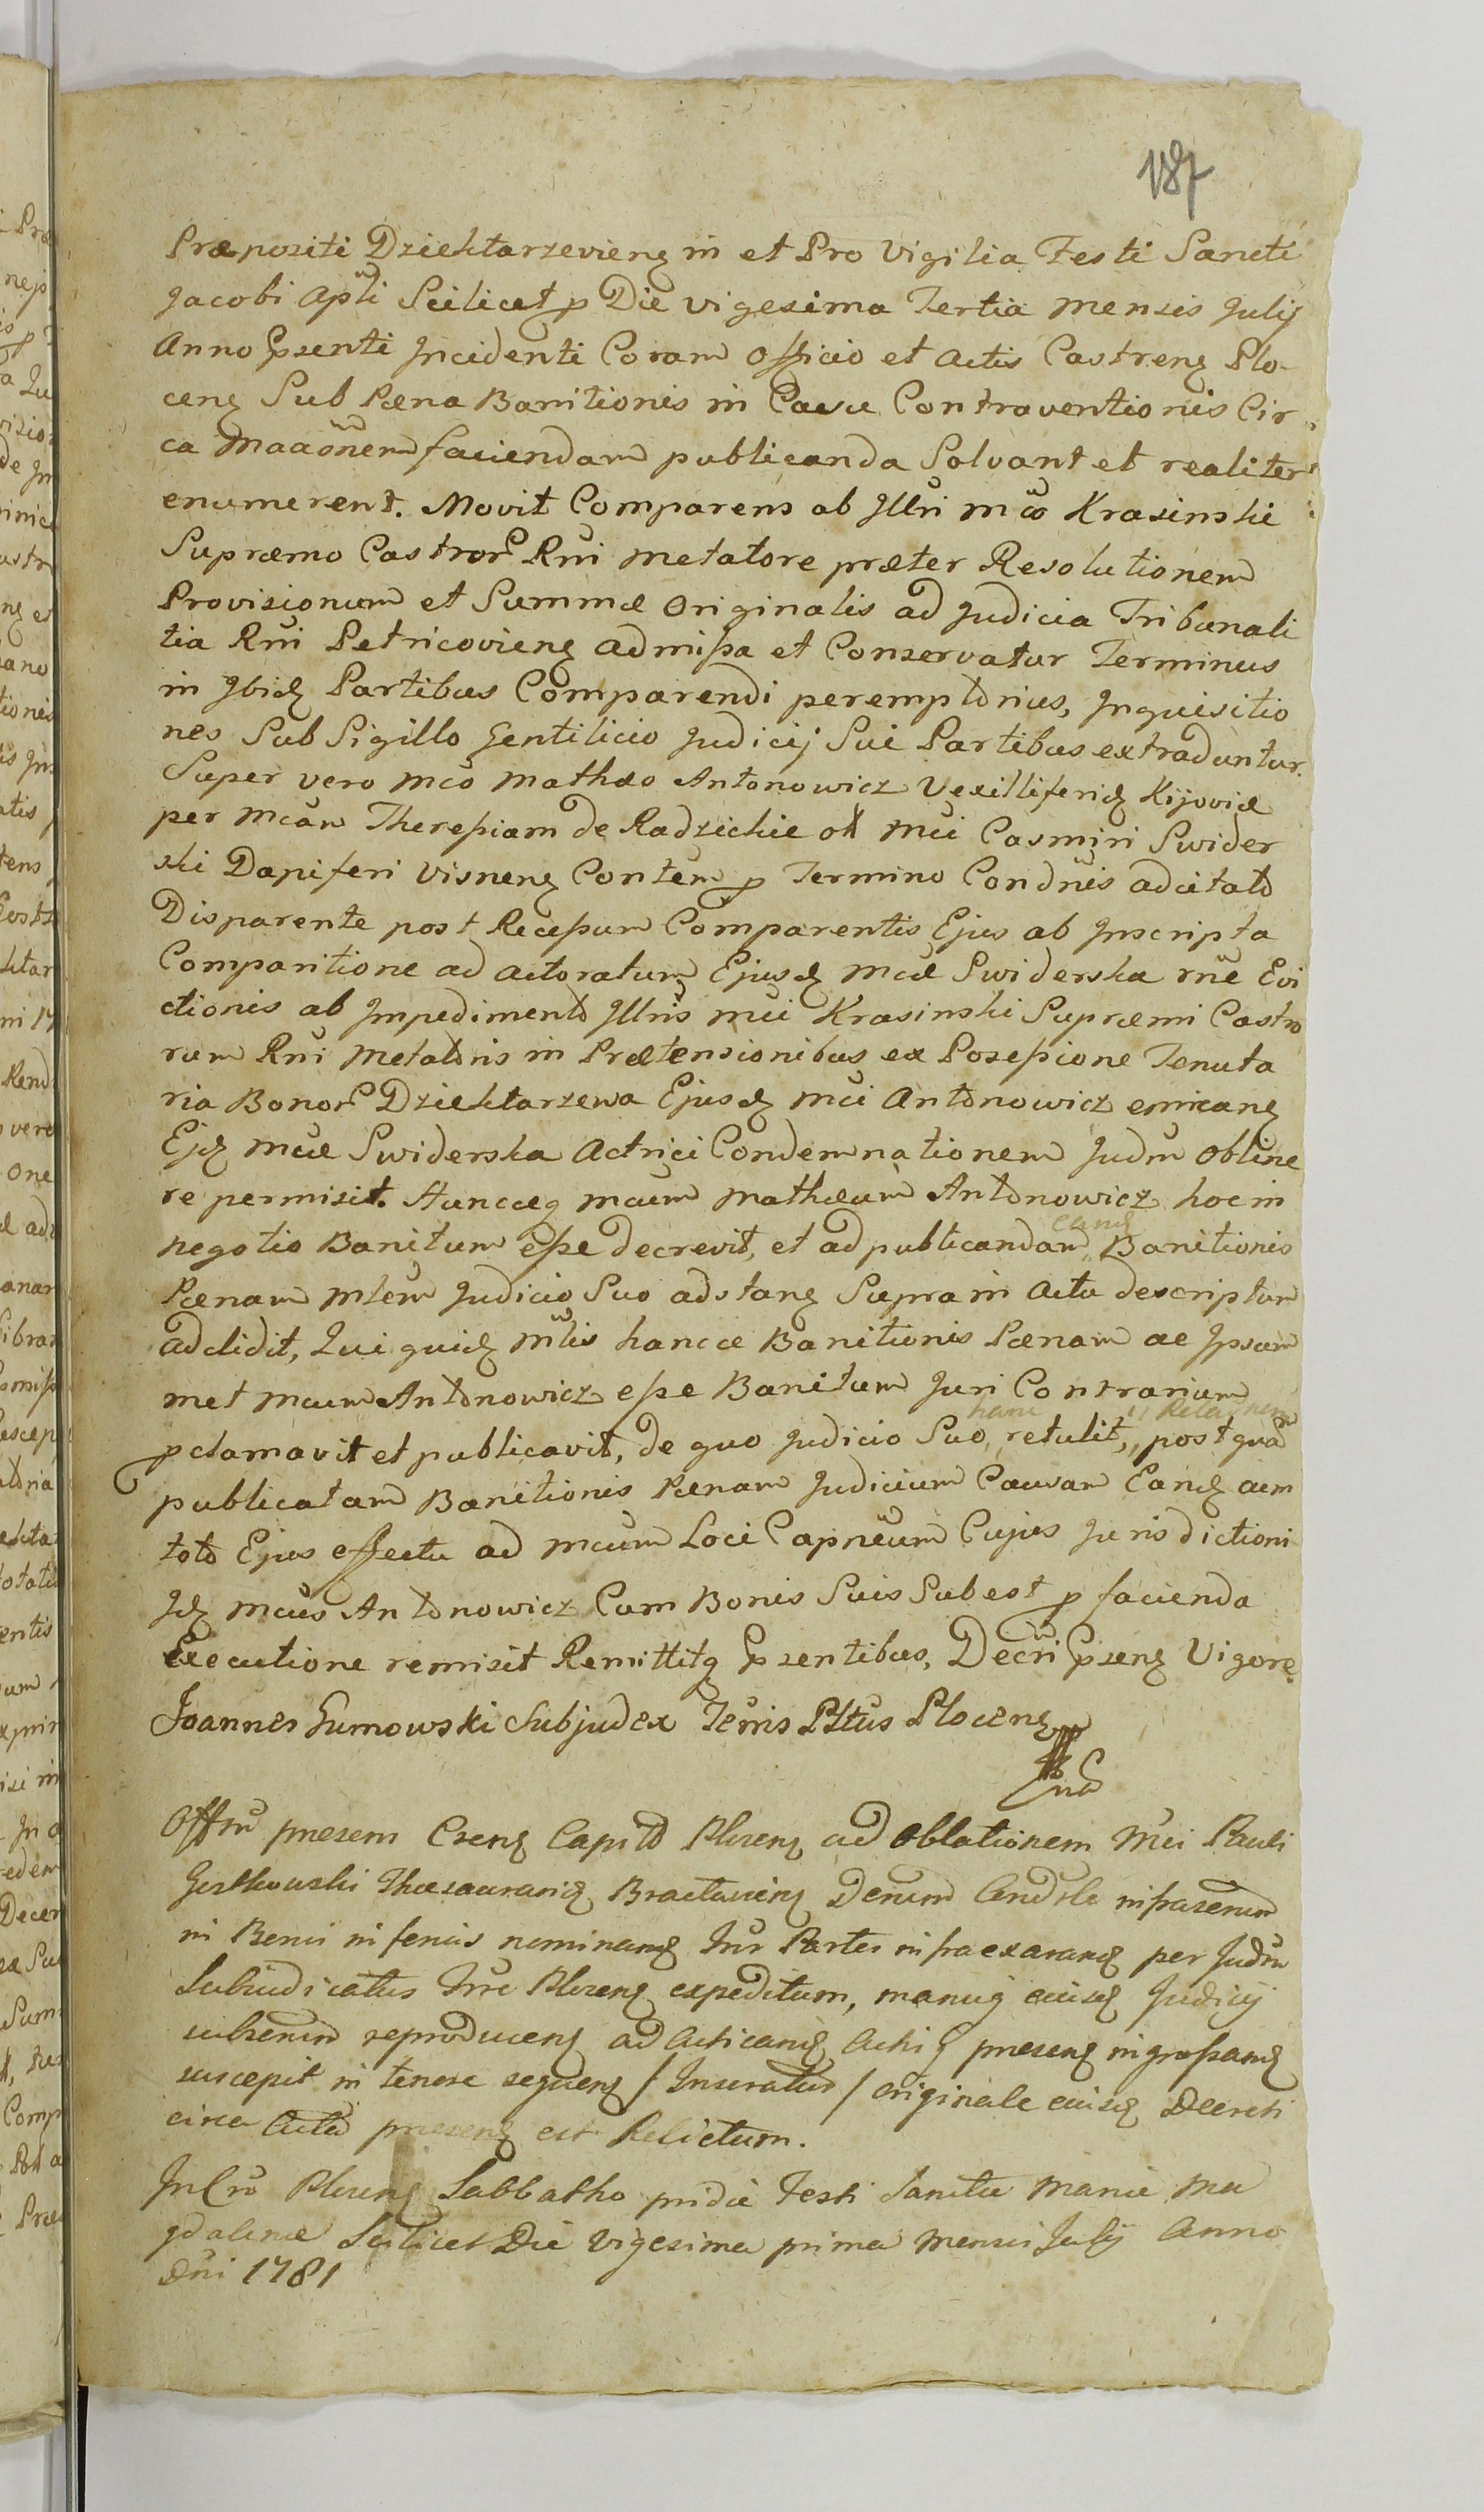 187
Præpositi Dziektarzevieng in et Pro Vigilia Festi Sancti
Jacobi Apli Scilicet p Die vigesima Tertia mensis Julij
Anno Psenti Incidenti Coram Officio et Actis Castreng Plo-
ceng Sub Pæna Banitionis in Casu Contraventionis Cir
ca Maaönem faciendam publicanda Solvant et realiter
enumerent. Movit Comparens ab Jllri mco Krasinski
Supræmo Castror Rni metatore præter Resolutionem
Provisionum et Summæ Originalis ad Judicia Tribunali
tia Rni Petricovieng admissa et Conservatur Terminus
in Ibid Partibus Comparendi peremptorius, Inquisitio
nes Sub Sigillo Gentilicio Judicij Sui Partibus extraduntur.
Super vero mco Mathæo Antonowicz Vexilliferid Kijoviæ
per mcam Theresiam de Radzickie olt mci Casmiri Swider
ski Dapiferi Visneng Contem p Termino Condnis adcitato
Disparente post Recessum Comparentis Ejus ab Inscripta
Comparitione ad actoratum Ejusd mcæ Swiderska rne Evi
ctionis ab Impedimento Jllris mci Krasinski Supræmi Castro
rum Rni Metatoris in Prætensionibus ex Posessione Tenuta
ria Bonor Dziektarzewa Ejusd mci Antonowicz emicang
Ejd mcæ Swiderska Actrici Condemnationem Judm Obtine
re permisit. Huncceq mcum Mathæum Antonowicz hoc in
eand
negotio Banitum esse decrevit, et ad publicandam Banitionis
Pænam mlem Judicio Suo adstang Supra in Actu descriptum
addidit, Qui quid mlis hancce Banitionis Pænam ac Ipsum
met mcum Antonowicz esse Banitum Juri Contrarium
hanc Relaönem
pclamavit et publicavit, de quo Judicio Suo retulit, post qua
publicatam Banitionis Pænam Judicium Causam Eand cum
toto Ejus effectu ad mcum Loci Capneum Cujus Jurisdictioni
Id mcus Antonowicz Cum Bonis Suis Subest p facienda
Executione remisit Remittitq Psentibus, Decri Pseng Vigore
Joannes Gumowski Subjudex Terris Pltus Ploceng
Offm presens Cseng Capito Plceng ad Oblationem Mci Pauli
in Benis inferius nominand Inr Partes infra exarand per Judm
Subiudicatus Trre Plceng expeditum, manuq eiusd Judicij
subscnum reproduceng ad Acticand Actis q preseng ingrossand
suscepit in tenore sequeng / Inseratur / originale eiusd Decreti
circa Acta preseng est Relictum.
In Cro Plceng Sabbatho pridie Festi Sanctæ Mariæ Ma
gdalenæ Scilicet Die vigesima prima Mensis Julij Anno
Dni 1781